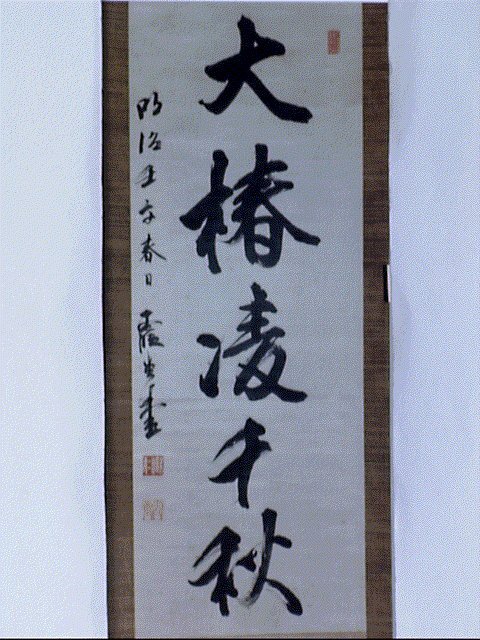 大椿凌千秋
明治壬春日書